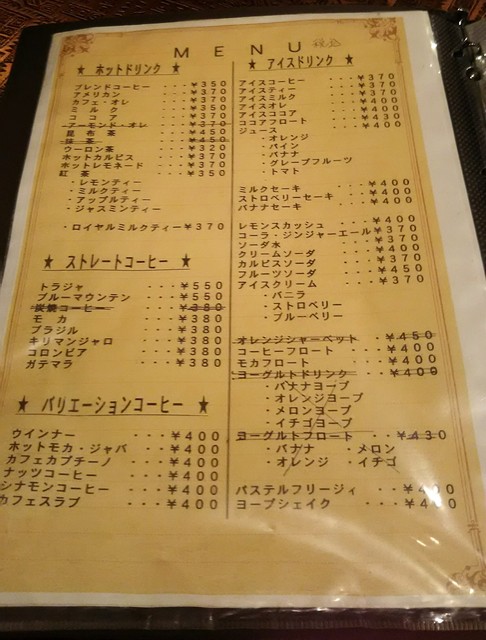 MENU 税込
★ ホットドリンク ★
ブレンドコーヒー ・・・￥350
アメリカン ・・・￥370
カフェ・オレ ・・・￥370
ミルク ・・・￥350
ココア ・・・￥370
アーモンド・オレ ・・・￥370
昆布茶 ・・・￥450
抹茶 ・・・￥450
ウーロン茶 ・・・￥320
ホットカルピス ・・・￥370
ホットレモネード ・・・￥370
紅茶 ・・・￥350
・レモンティー
・ミルクティー
・アップルティー
・ジャスミンティー
・ロイヤルミルクティー￥370
★ ストレートコーヒー ★
トラジャ ・・・￥550
ブルーマウンテン ・・・￥550
炭焼コーヒー ・・・￥380
モカ ・・・￥380
ブラジル ・・・￥380
キリマンジャロ ・・・￥380
コロンビア ・・・￥380
ガテマラ ・・・￥380
★ バリエーションコーヒー ★
ウインナー ・・・￥400
ホットモカ・ジャバ ・・・￥400
カフェカプチーノ ・・・￥400
ナッツコーヒー ・・・￥400
シナモンコーヒー ・・・￥400
カフェスラブ ・・・￥400
★ アイスドリンク ★
アイスコーヒー ・・・￥370
アイスティー ・・・￥370
アイスミルク ・・・￥370
アイスオレ ・・・￥400
アイスココア ・・・￥400
ココアフロート ・・・￥430
ジュース ・・・￥400
・オレンジ
・パイン
・バナナ
・グレープフルーツ
・トマト
ミルクセーキ ・・・￥400
ストロベリーセーキ ・・・￥400
バナナセーキ ・・・￥400
レモンスカッシュ ・・・￥400
コーラ・ジンジャーエール￥370
ソーダ水 ・・・￥370
クリームソーダ ・・・￥400
カルピスソーダ ・・・￥370
フルーツソーダ ・・・￥450
アイスクリーム ・・・￥370
・バニラ
・ストロベリー
・ブルーベリー
オレンジシャーベット ・￥450
コーヒーフロート ・・・￥400
モカフロート ・・・￥400
ヨーグルトドリンク ・・￥400
・バナナヨープ
・オレンジヨープ
・メロンヨープ
・イチゴヨープ
ヨーグルトフロート ・・￥430
・バナナ ・メロン
・オレンジ ・イチゴ
パステルフリージィ ・・￥
ヨープシェイク ・・・￥